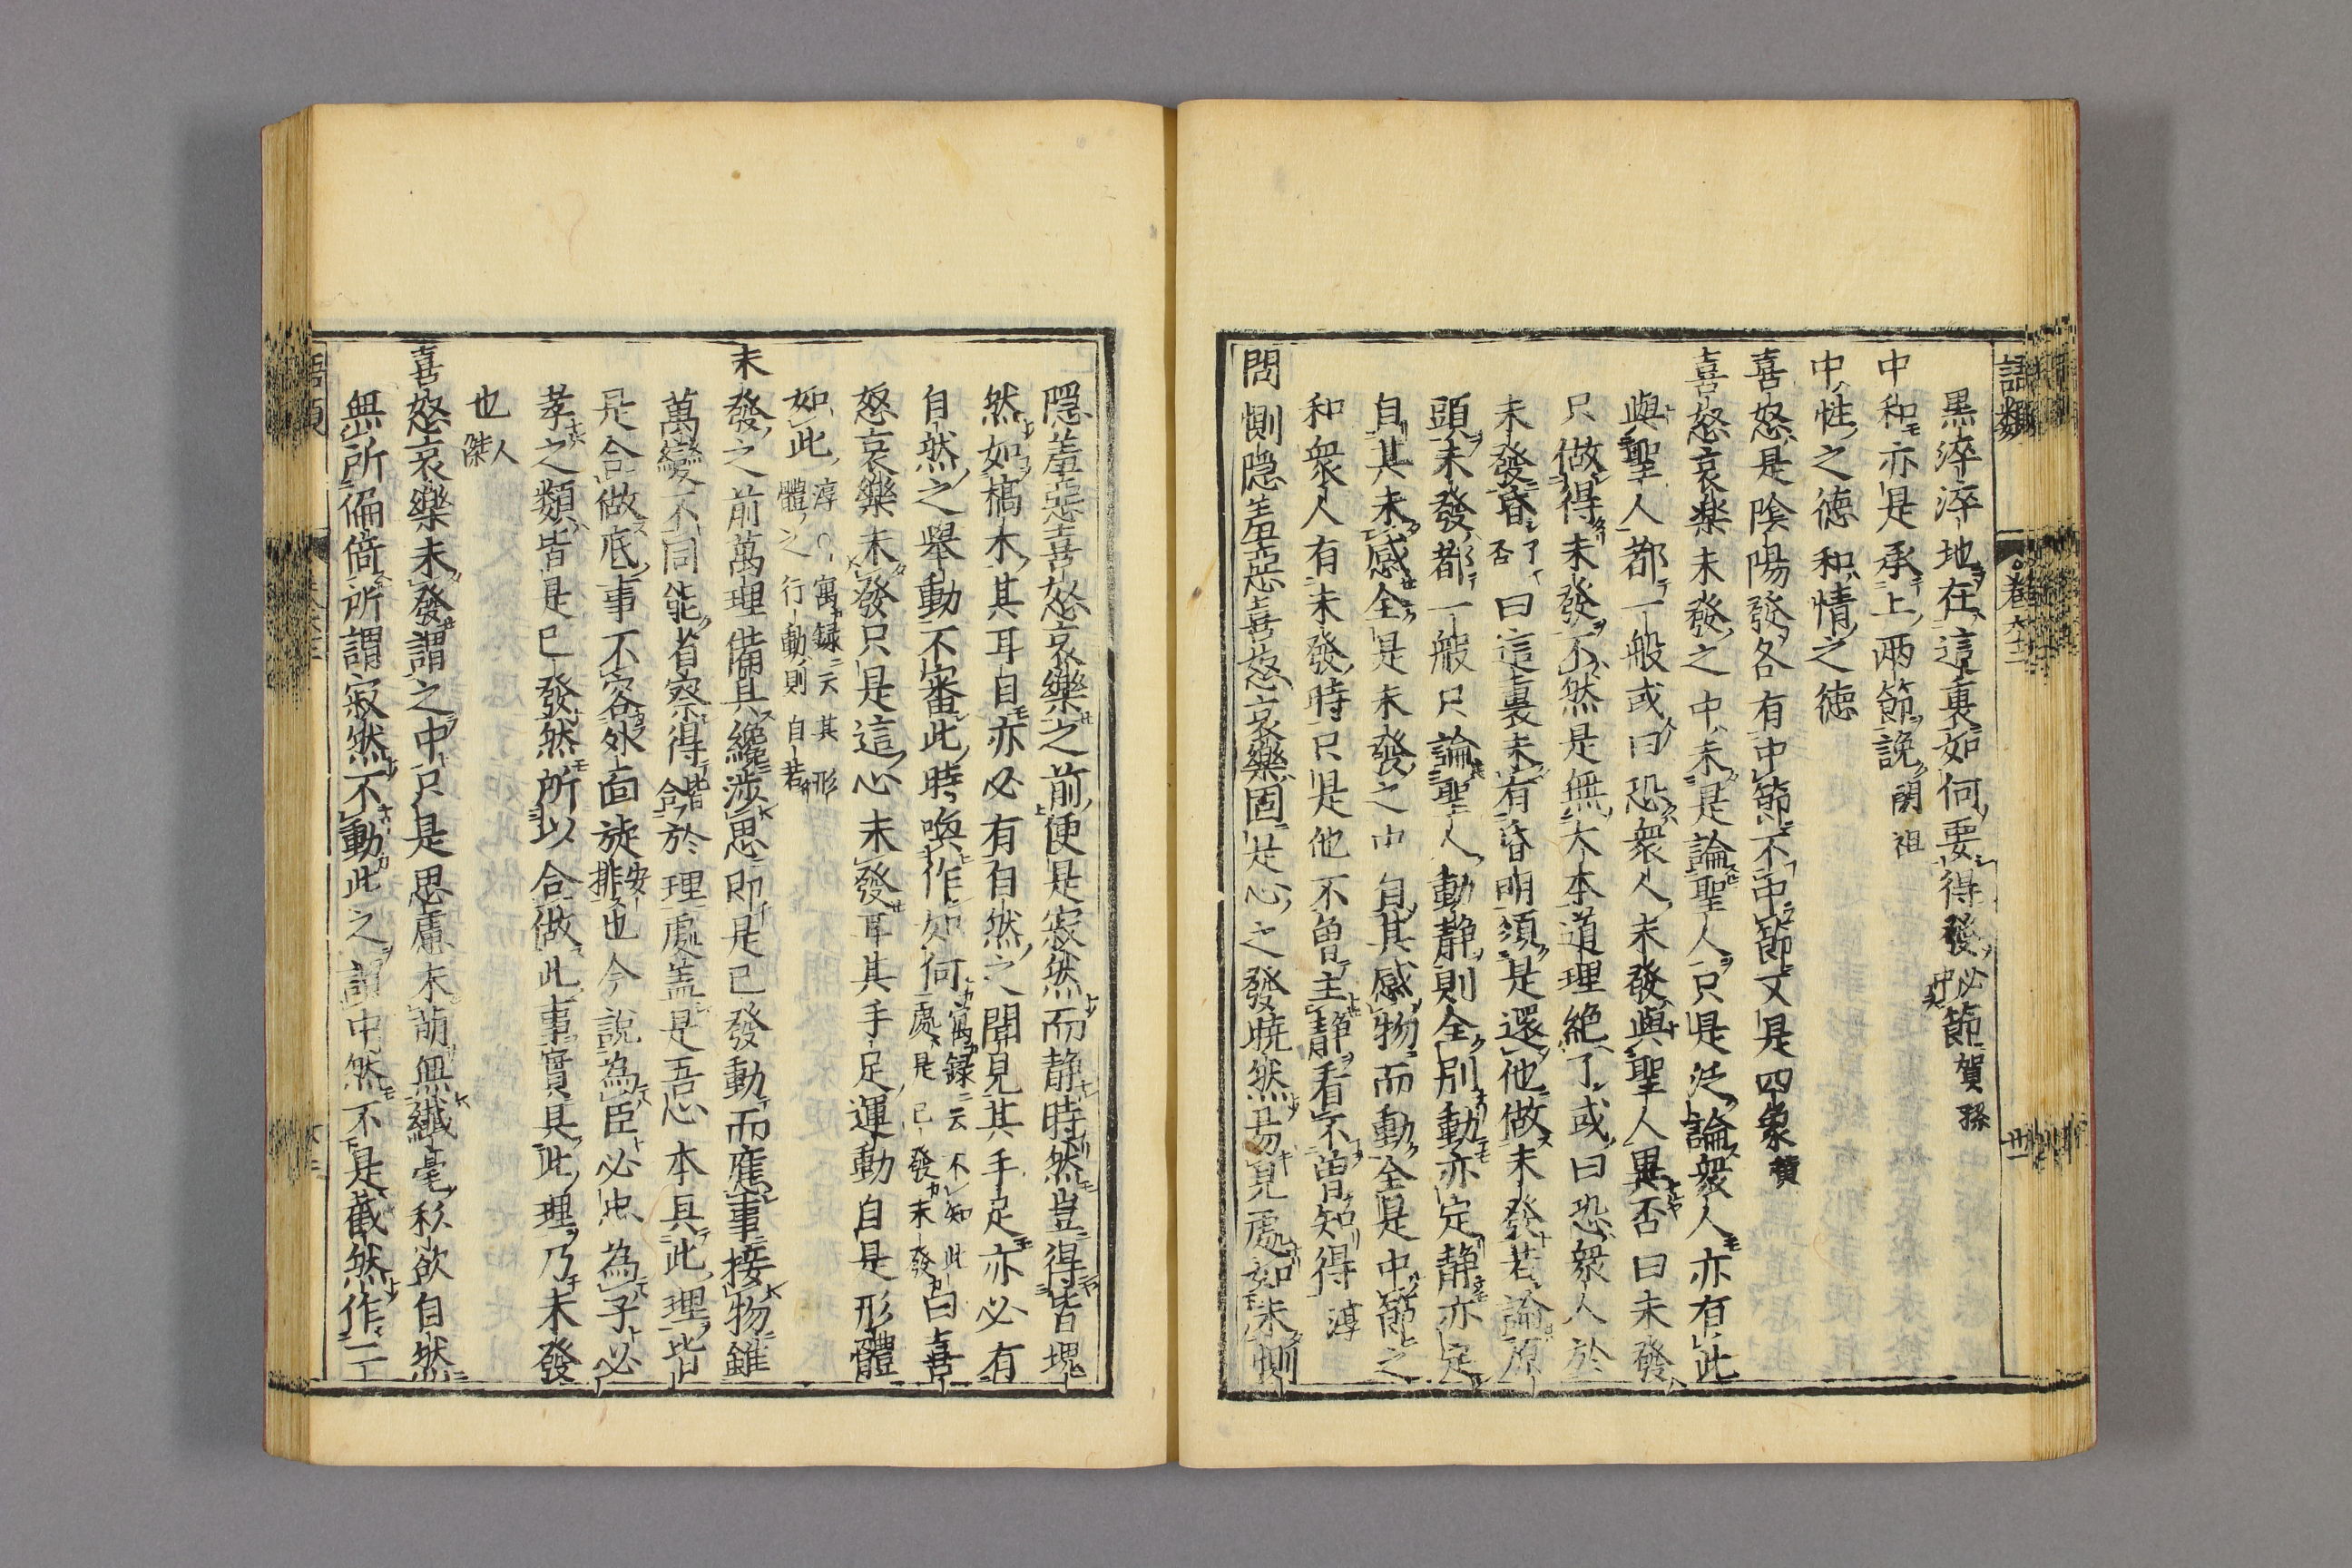 語類
卷六十二
廿一
黒淬淬地在這裏如何要得發必中其節賀孫
中和亦是承上兩節說閎祖
中性之德和情之德
喜怒是陰陽發各有中節不中節又是四象𥫃
喜怒哀樂未發之中未是論聖人只是泛論衆人亦有此
與聖人都一般或曰恐衆人未發與聖人異否曰未發
只做得未發不然是無大本道理絶了或曰恐衆人於
未發昏了否曰這裏未有昏明須是還他做未發若論原
頭未發都一般只論聖人動靜則全別動亦定靜亦定
自其未感全是未發之中自其感物而動全是中節之
和衆人有未發時只是他不曾主靜看不曾知得淳
問惻隱羞惡喜怒哀樂固是心之發曉然易見處如未惻
隱羞惡喜怒哀樂之前便是寂然而静時然豈得皆塊
然如槁木其耳目亦必有自然之聞見其手足亦必有
自然之舉動不審此時喚作如何寓録云不知此處是已發未發曰喜
怒哀樂未發只是這心未發耳其手足運動自是形體
如此淳○寓録云其形體之行動則自若
未發之前萬理備具纔涉思即是已發動而應事接物雖
萬變不同能省察得皆合於理處蓋是吾心本具此理皆
是合做底事不容外面旋安排也今說為臣必忠為子必
孝之類皆是已發然所以合做此事實具此理乃未發
也人傑
喜怒哀樂未發謂之中只是思慮未萌無纖毫私欲自然
無所偏倚所謂寂然不動此之謂中然不是截然作二
語類